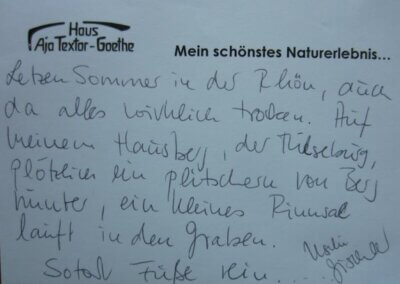 Haus
Aja Textor-Goethe
Mein schönstes Naturerlebnis...
Letzen Sommer in der Rhön, auch
da alles wirklich trocken. Auf
meinem Hausberg, der Milseburg,
plötzlich ein plitschern von Berg
runter, ein kleines Rinnsal
läuft in den Graben.
Sofort Füße rein...